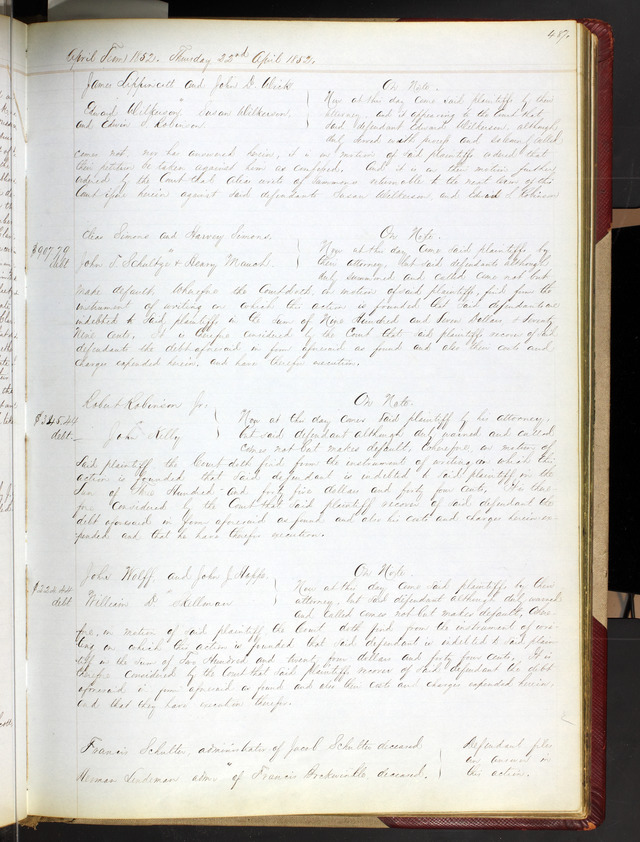 487.
April Term 1852. Thursday 22nd April 1852.
James Lippincott and John D. Weick
Edward Wilkerson, Susan Wilkerson,
and Edwin S. Robinson
On Note.
Now at this day come said plaintiffs by their
attorney, and it appearing to the Court that
said defendant Edward Wilkerson, although
duly served with process and solemnly called
comes not, nor has answered herein, it is on motion of said plaintiffs ordered that
their petition be taken against him as confessed. And it is on their motion further
ordered by the Court that alias writs of summons returnable to the next term of this
Court issue herein against said defendants Susan Wilkerson, and Edwin S. Robinson
$907.79
debt
Chas Simons and Harvey Simons.
John T. Schultze & Henry Mauch.
On Note.
Now at this day come said plaintiffs by
their attorney, but said defendants although
duly summoned and called come not but
make default, Wherefore the Court doth, on motion of said plaintiffs, find from the
instrument of writing on which the action is founded that said defendants are
indebted to said plaintiffs in the sum of Nine Hundred and Seven Dollars & Seventy
Nine cents. It is therefore considered by the Court that said plaintiffs recover of said
defendants the debt aforesaid in form aforesaid as found and also their costs and
charges expended herein, and have thereof execution.
$345.44
debt
Robert Robinson Jr.
John Kelly
On Note.
Now at this day comes said plaintiff by his attorney,
but said defendant although duly warned and called
comes not but makes default, Wherefore, on motion of
said plaintiff, the Court doth find from the instrument of writing on which the
action is founded, that said defendant is indebted to said plaintiff in the
Sum of Three Hundred and forty five dollars and forty four cents, It is there-
fore considered by the Court that said plaintiff recover of said defendant the
debt aforesaid in form aforesaid as found and also his costs and charges herein ex-
pended and that he have thereof execution.
$224.44
debt
John Wolff and John J. Hoppe
William D. Skillman
On Note.
Now at this day come said plaintiffs by their
attorney, but said defendant although duly warned
and called comes not but makes default, Where-
fore, on motion of said plaintiffs the Court doth find from the instrument of wri-
ting on which this action is founded that said defendant is indebted to said plain-
tiffs in the sum of Two Hundred and twenty four dollars and forty four cents, It is
therefore considered by the Court that said plaintiffs recover of said defendant the debt
aforesaid in form aforesaid as found and also their costs and charges expended herein,
and that they have execution therefor.
Francis Schulter, administrator of Jacob Schulter deceased
Herman Lindeman admr of Francis Brockwinkle, deceased.
Defendant files
an answer in
this action.